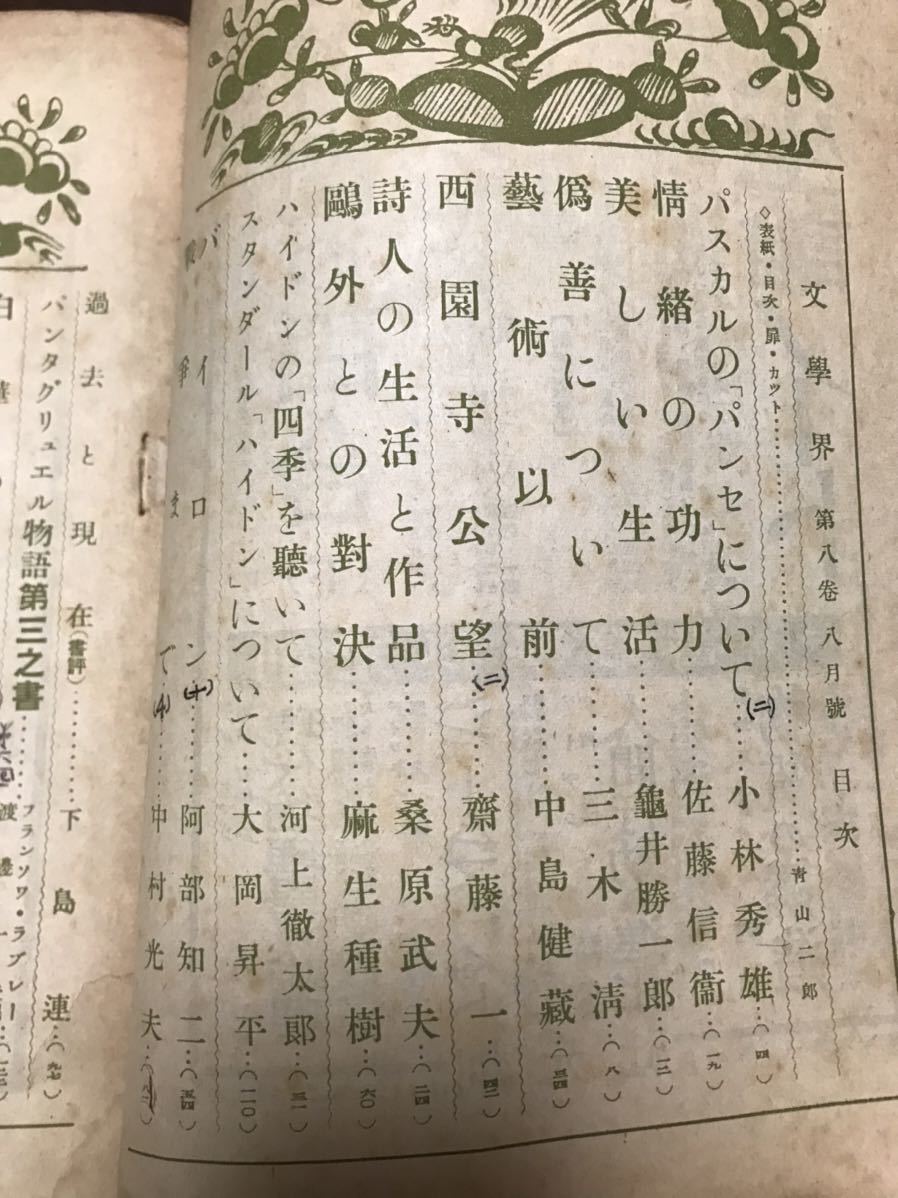 文學界 第八卷 八月號 目次
◇表紙・目次・扉・カット……青山二郎
パスカルの「パンセ」について(二)……小林秀雄…(四)
情緒の功力……佐藤信衞…(一九)
美しい生活……龜井勝一郎…(一二)
僞善について……三木淸…(八)
藝術以前……中島健藏…(三四)
西園寺公望(二)……齋藤一…(四二)
詩人の生活と作品……桑原武夫…(二四)
鷗外との對決……麻生種樹…(六〇)
ハイドンの「四季」を聽いて……河上徹太郞…(三一)
スタンダール「ハイドン」について……大岡昇平…(一一〇)
バイロン(十)……阿部知二…(五四)
爭まで……中村光夫
過去と現在(書評)……下島連…(九七)
パンタグリュエル物語第三之書……フランソワ・ラブレー
渡邊一
白